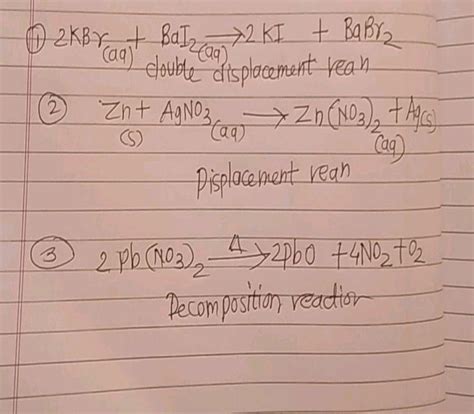 ① 2KBr(aq) + BaI₂(aq) → 2KI + BaBr₂
double displacement rean
② Zn(s) + AgNO₃(aq) → Zn(NO₃)₂(aq) + Ag(s)
Displacement rean
③ 2Pb(NO₃)₂ —Δ→ 2PbO + 4NO₂ + O₂
Decomposition reaction